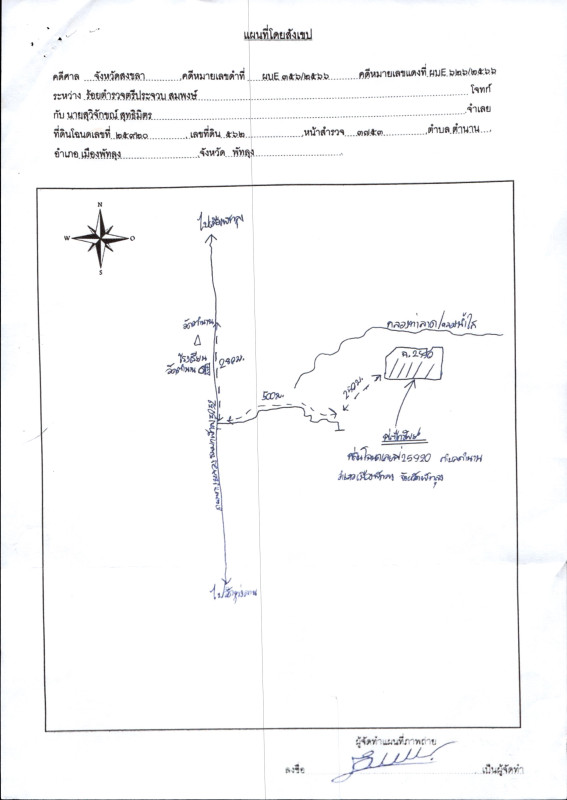 แผนที่โดยสังเขป
คดีศาล จังหวัดสงขลา คดีหมายเลขดำที่ ผบE ๓๕๖/๒๕๖๖ คดีหมายเลขแดงที่ ผบE ๖๒๖/๒๕๖๖
ระหว่าง ร้อยตำรวจตรีประจวบ สมพงษ์ โจทก์
กับ นายสุวิจักขณ์ สุทธิมิตร จำเลย
ที่ดินโฉนดเลขที่ ๒๕๙๒๐ เลขที่ดิน ๕๖๒ หน้าสำรวจ ๓๗๕๓ ตำบล ตำนาน
อำเภอ เมืองพัทลุง จังหวัด พัทลุง
N
W O
S
คลองท่าลาด/คลองน้ำใส
วัดตำนาน
โรงเรียน
วัดตำนาน
240ม.
500ม.
240ม.
ที่ตั้งทรัพย์
ที่ดินโฉนดเลขที่ 25920 ตำบลตำนาน
อำเภอเมืองพัทลุง จังหวัดพัทลุง
ผู้จัดทำแผนที่ภาพถ่าย
ลงชื่อ เป็นผู้จัดทำ